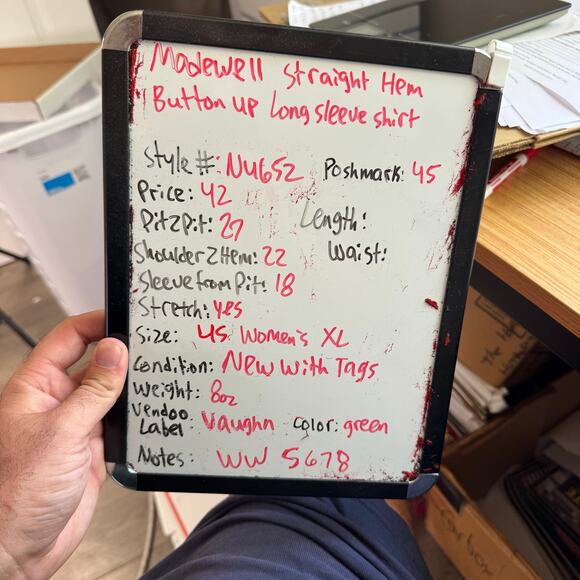 Madewell Straight Hem
Button up Long sleeve shirt
Style #: NU652 Poshmark: 45
Price: 42
Pit2Pit: 27 Length:
Shoulder2Hem: 22 Waist:
Sleeve from Pit: 18
Stretch: yes
Size: US Women's XL
Condition: New With Tags
Weight: 8oz
Vendoo
Label: Vaughn Color: green
Notes: WW 5678